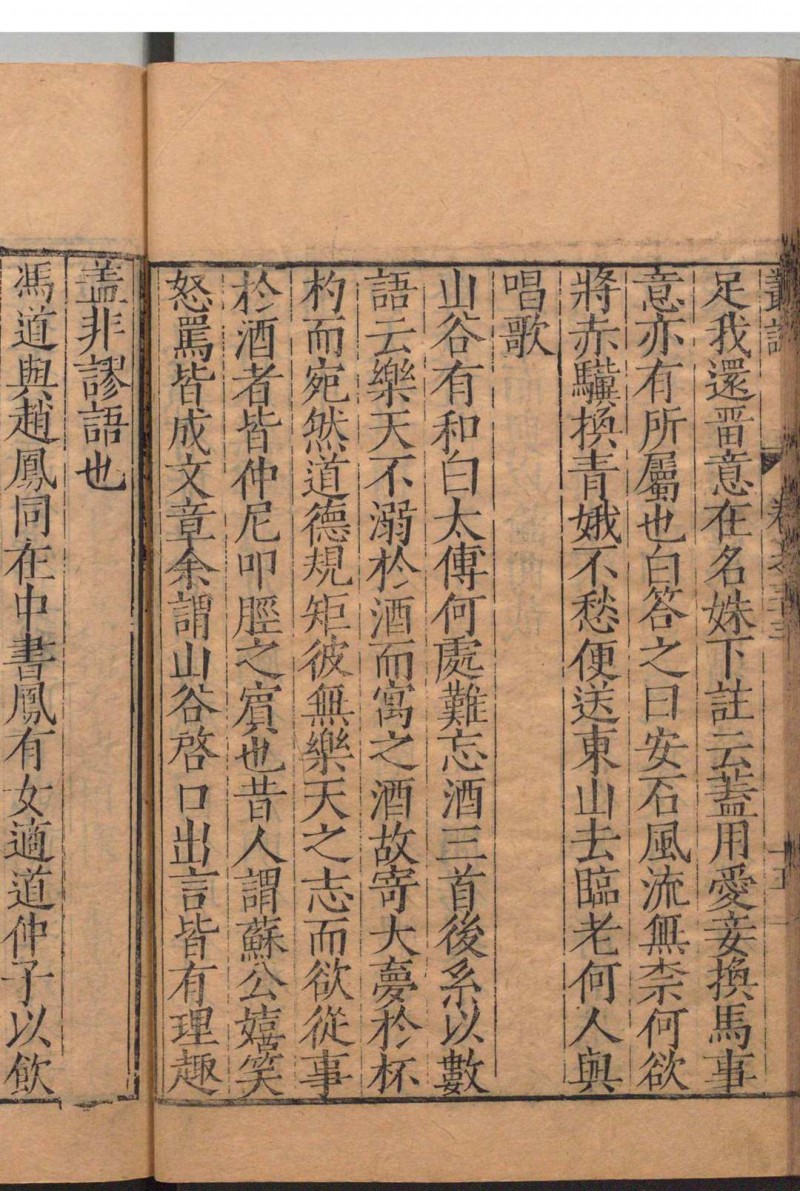 足我還畱意在名姝下註云蓋用愛妾換馬事
意亦有所屬也白答之曰安石風流無柰何欲
將赤驥換青娥不愁便送東山去臨老何人與
唱歌
山谷有和白太傅何處難忘酒三首後系以數
語云樂天不溺於酒而寓之酒故寄大夢於杯
杓而宛然道德規矩彼無樂天之志而欲從事
於酒者皆仲尼叩脛之賓也昔人謂蘇公嬉笑
怒罵皆成文章余謂山谷啓口出言皆有理趣
蓋非謬語也
馮道與趙鳳同在中書鳳有女適道仲子以飲